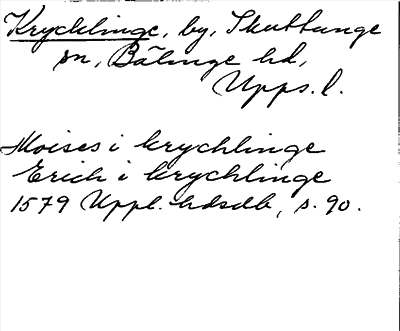 Krycklinge, by, Skuttunge
sn, Bälinge hd,
Upps. l.
Moises i krychlinge
Erich i krychlinge
1579 Uppl. hdsdb, s. 90.